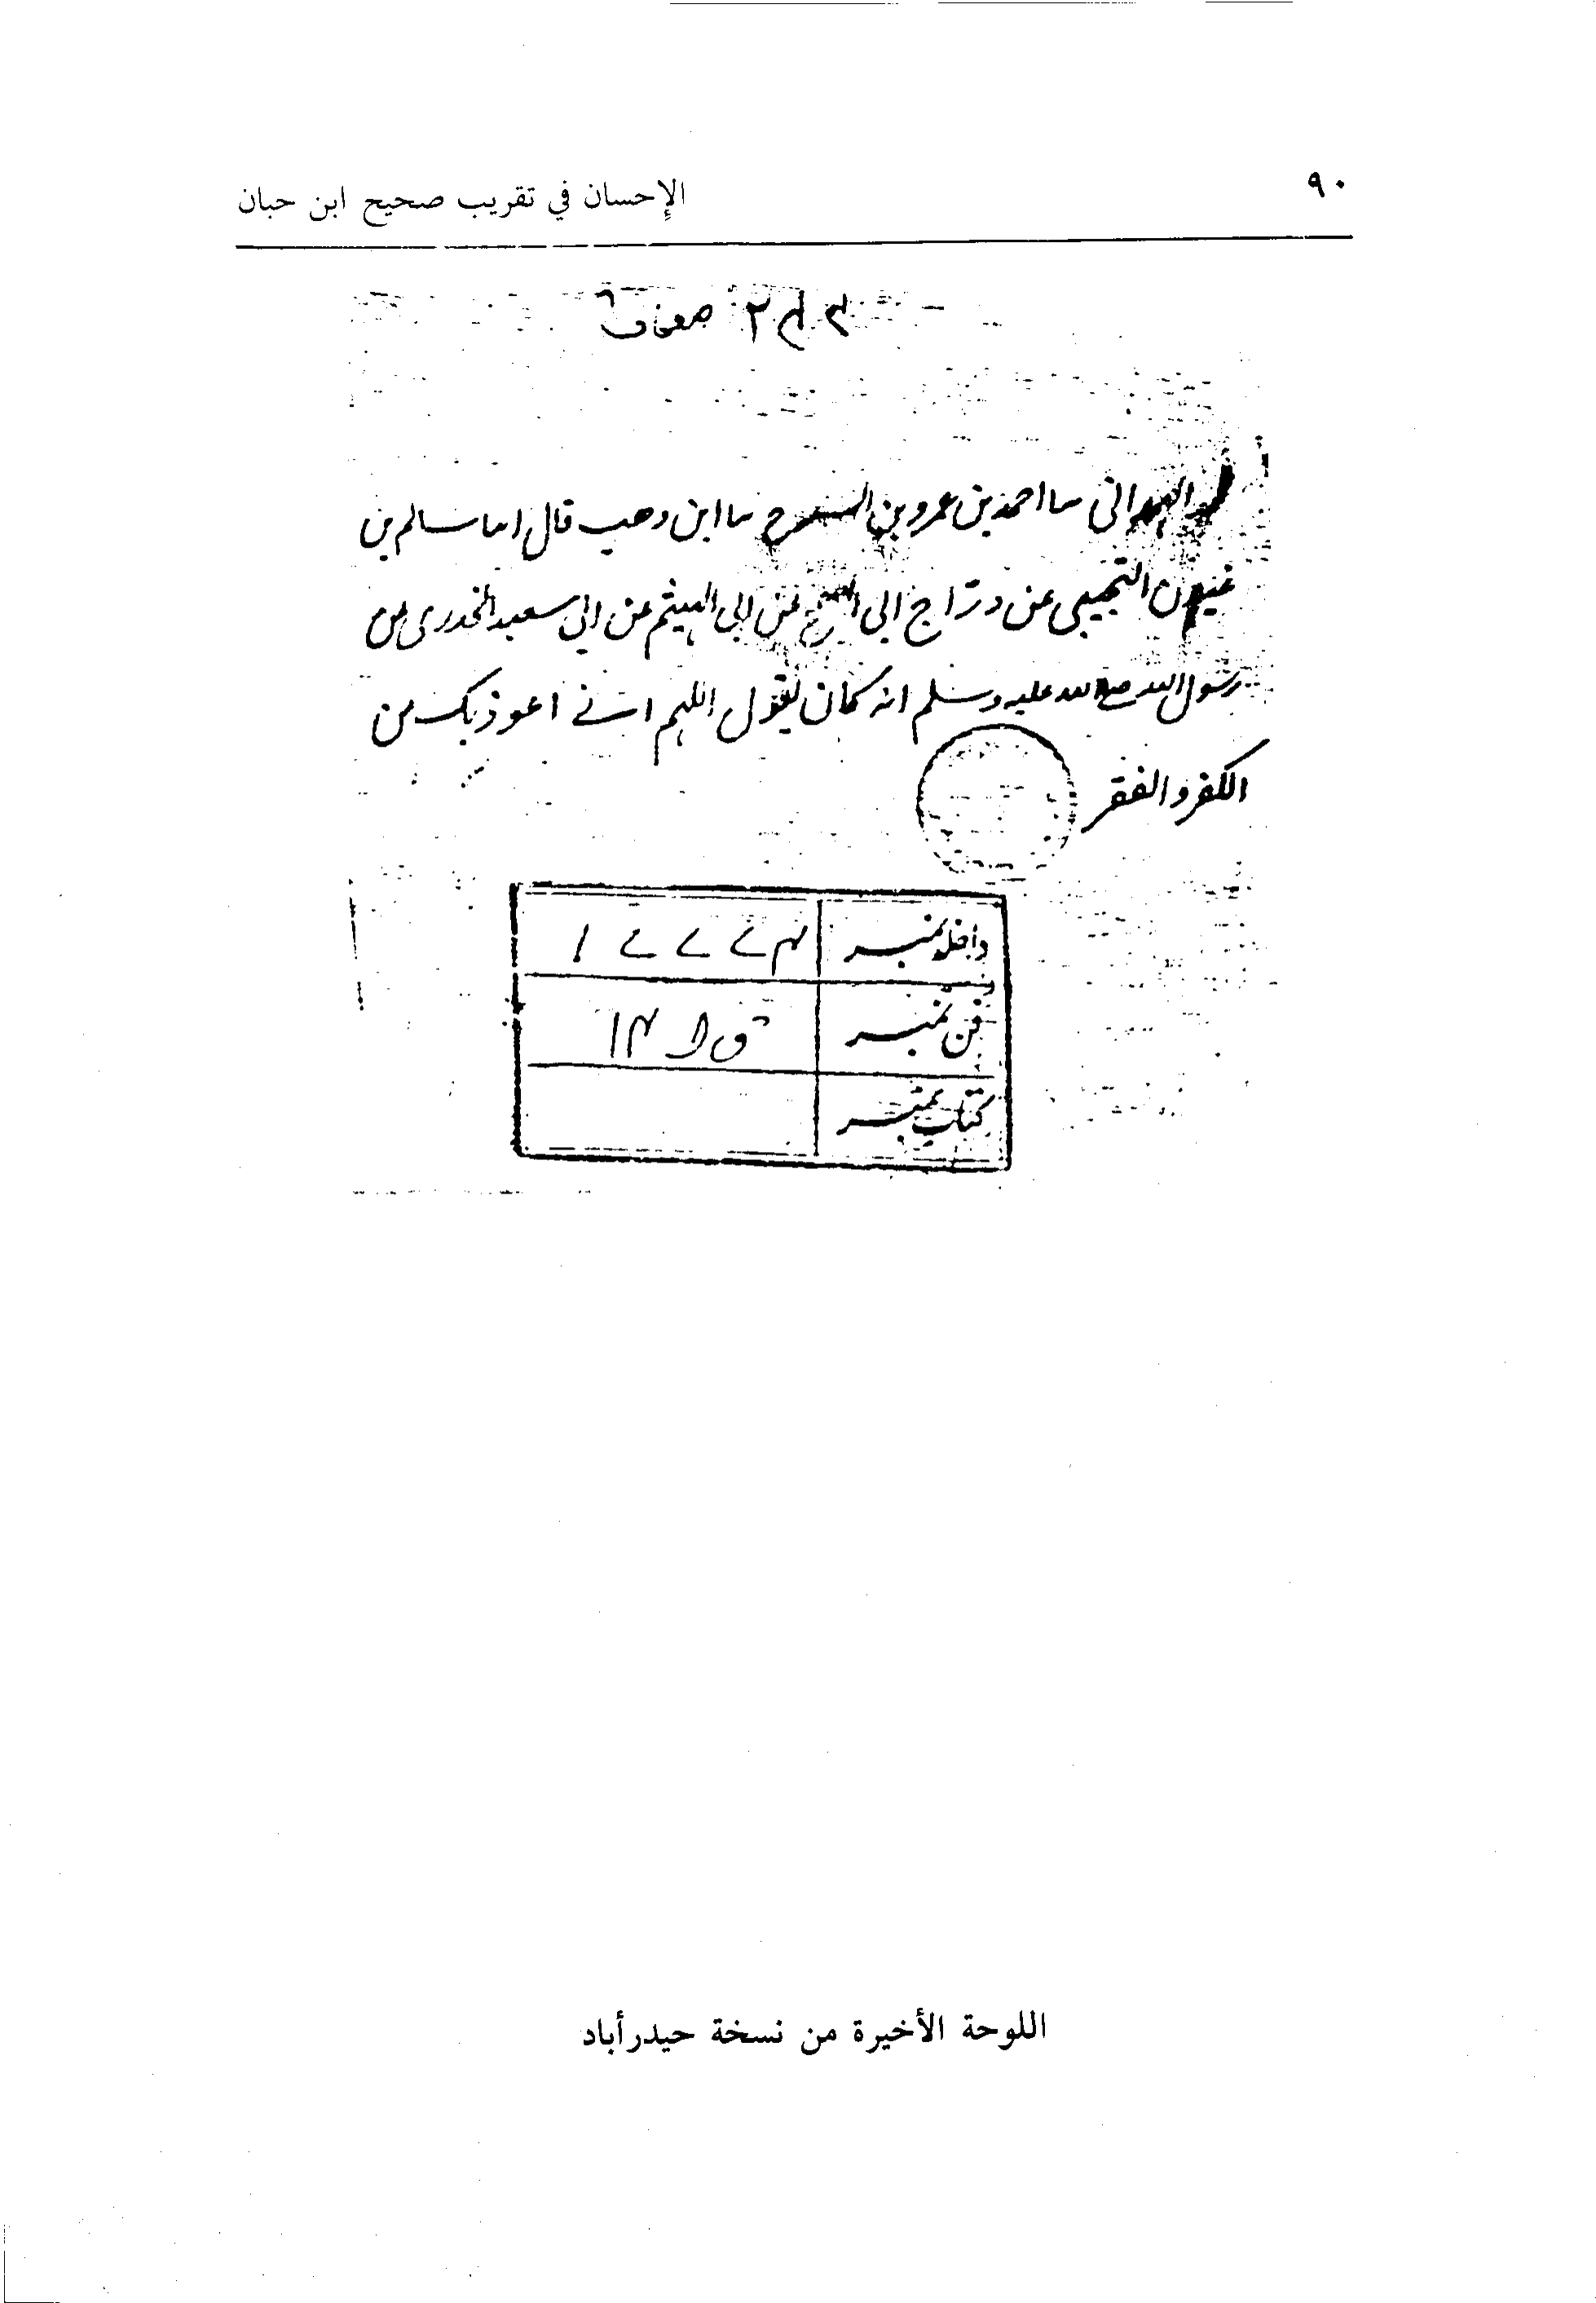 ٩٠
الإحسان في تقريب صحيح ابن حبان
الهمدانى سا احمد بن عمرو بن السرح سا ابن وهب قال اسا سالم بن
غيلان التجيبى عن دراج ابى السمح عن ابى الهيثم عن ابى سعيد الخدرى عن
رسول الله صلى الله عليه وسلم انه كان يقول اللهم انى اعوذ بك من
الكفر والفقر
داخلہ نمبر ۱۷۷۷۴
فن نمبر
کتاب نمبر
اللوحة الأخيرة من نسخة حيدرأباد